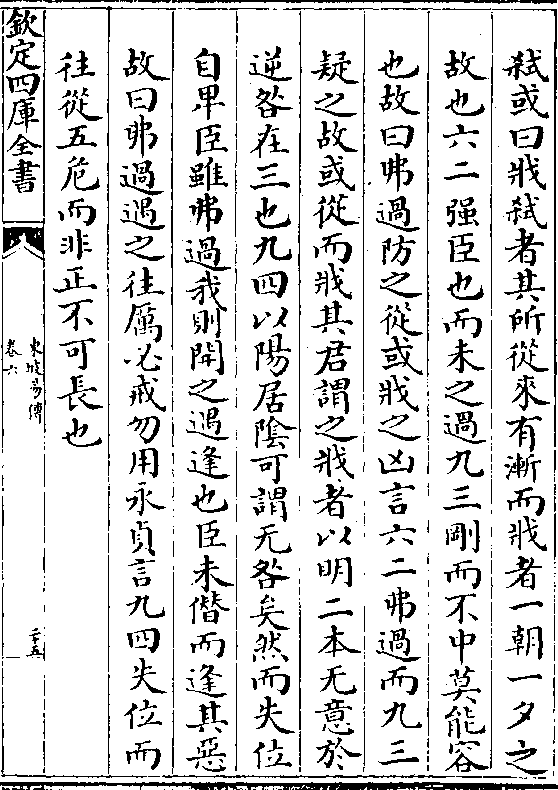 弑或曰戕弑者其所從來有漸而戕者一朝一夕之
故也六二强臣也而未之過九三剛而不中莫能容
也故曰弗過防之從或戕之凶言六二弗過而九三
疑之故或從而戕其君謂之戕者以明二本无意於
逆咎在三也九四以陽居陰可謂无咎矣然而失位
自卑臣雖弗過我則開之遇逢也臣未僭而逢其惡
故曰弗過遇之往厲必戒勿用永貞言九四失位而
往從五危而非正不可長也
欽定四庫全書
東坡易傳
卷六
二十五